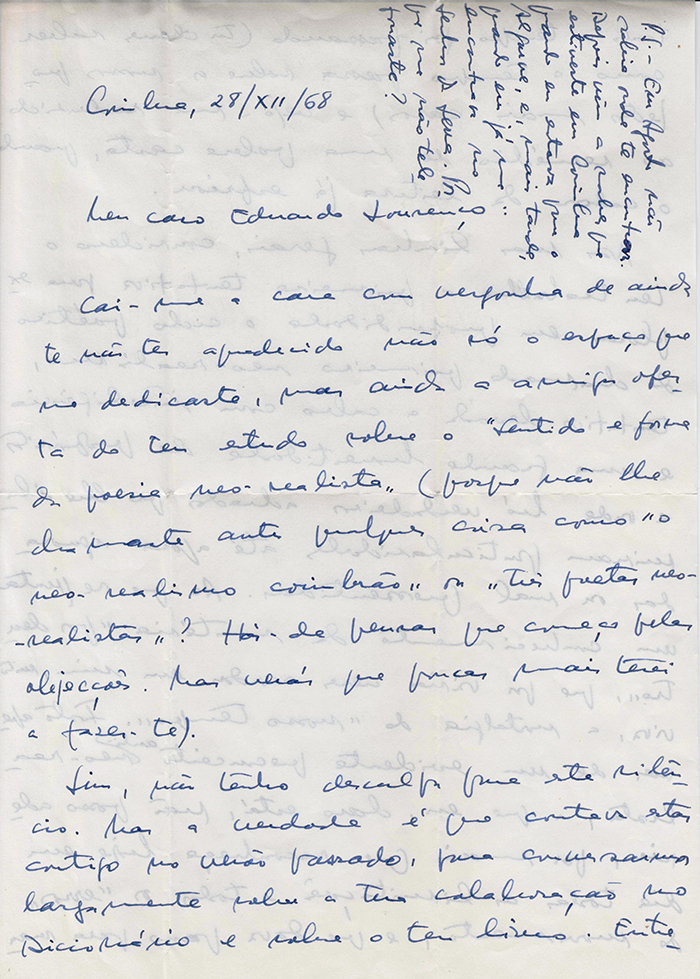 Coimbra, 28/XII/68
Meu caro Eduardo Lourenço,
Cai-me a cara com vergonha de ainda
te não ter agradecido não só o espaço que
me dedicaste, mas ainda a amiga ofer-
ta do teu estudo sobre o "Sentido e forma
da poesia neo-realista" (porque não lhe
chamaste antes qualquer coisa como "o
neo-realismo coimbrão" ou "três poetas neo-
-realistas"? Hás-de pensar que começo pelas
objecções. Mas verás que poucas mais terei
a fazer-te).
Sim, não tenho desculpa para este silên-
cio. Mas a verdade é que contava estar
contigo no verão passado, para conversarmos
largamente sobre a tua colaboração no
Dicionário e sobre o teu livro. Entre
P.S. - Em Agosto não
soube onde te encontrar.
Depois, vim a saber que
estiveste em Coimbra
quando eu estava para o
Algarve, e mais tarde,
quando eu já me
encontrava no
Senhor da Serra. Por-
que me não tele-
fonaste?